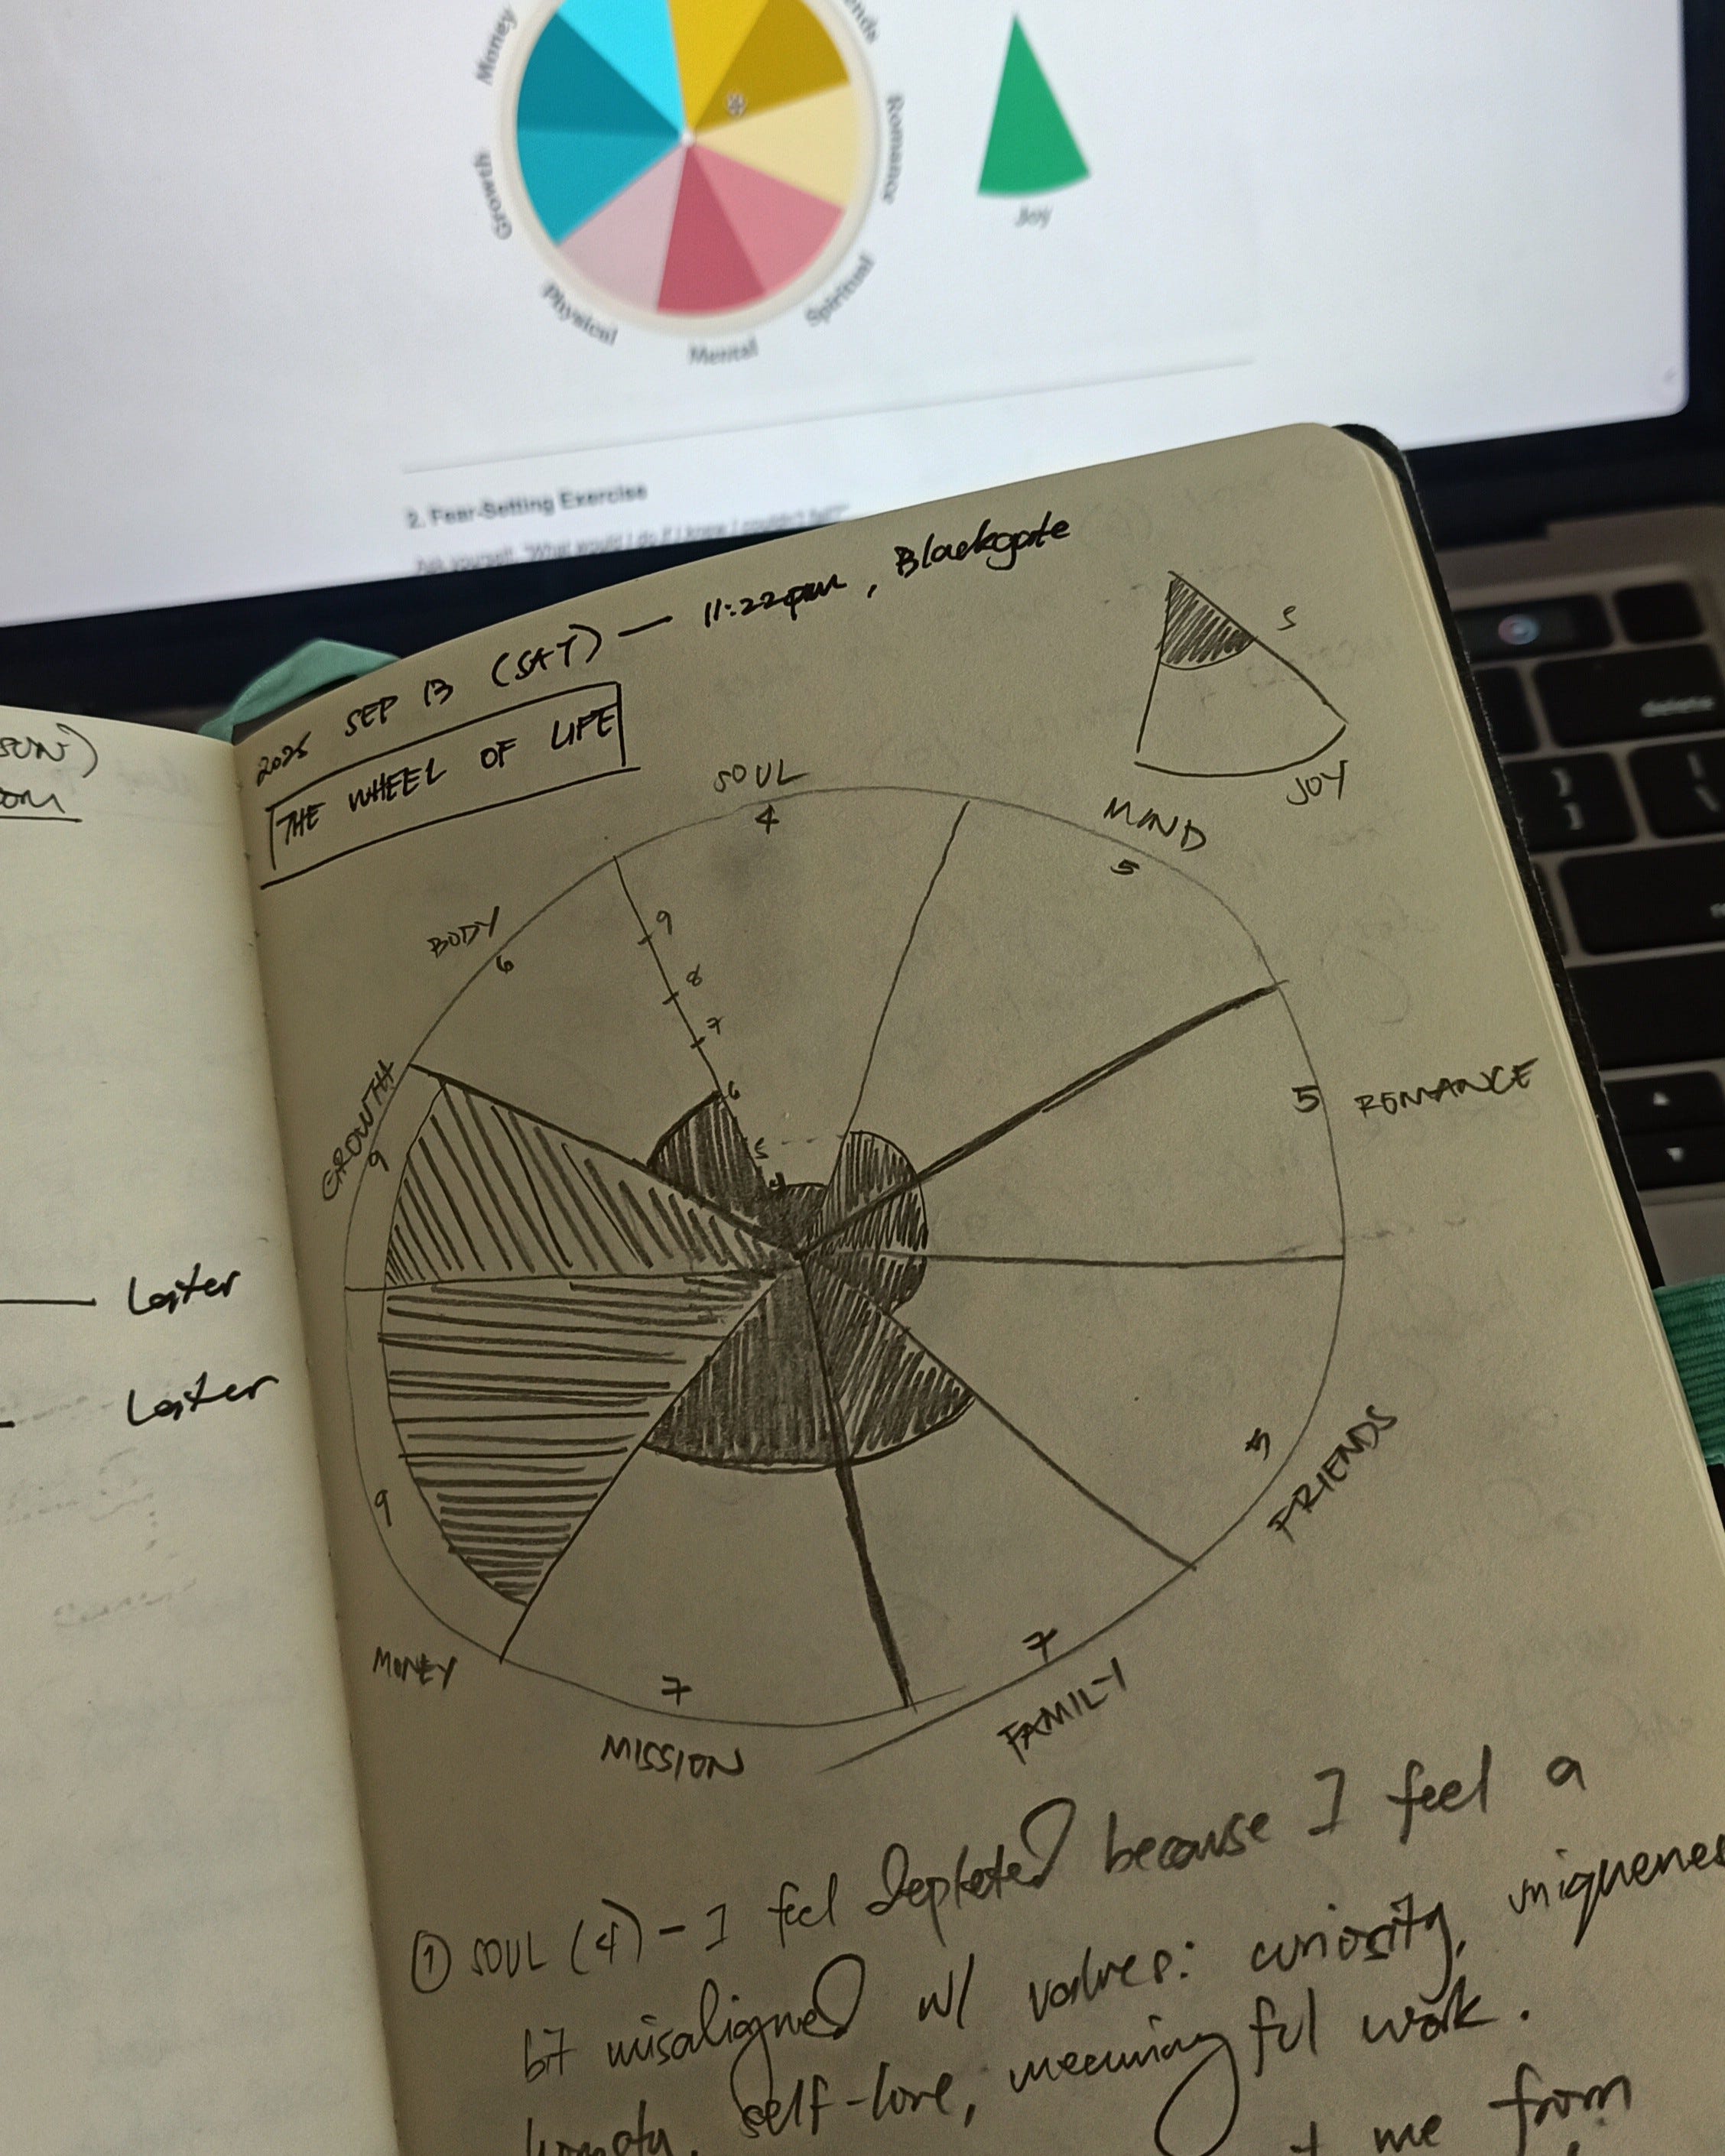 Money
Romance
Growth
Physical
Mental
Spiritual
Joy
2. Fear-Setting Exercise
Ask yourself: "What would I do if I knew I couldn't fail?"
2025 SEP 13 (SAT) — 11:22pm, Blackgate
THE WHEEL OF LIFE
5
JOY
SOUL
4
MIND
5
BODY
6
9
8
7
6
5
4
GROWTH
9
5 ROMANCE
5
FRIENDS
9
MONEY
7
MISSION
7
FAMILY
Later
Later
① SOUL (4) – I feel depleted because I feel a
bit misaligned w/ values: curiosity,
self-love, meaningful work.
me from
delete